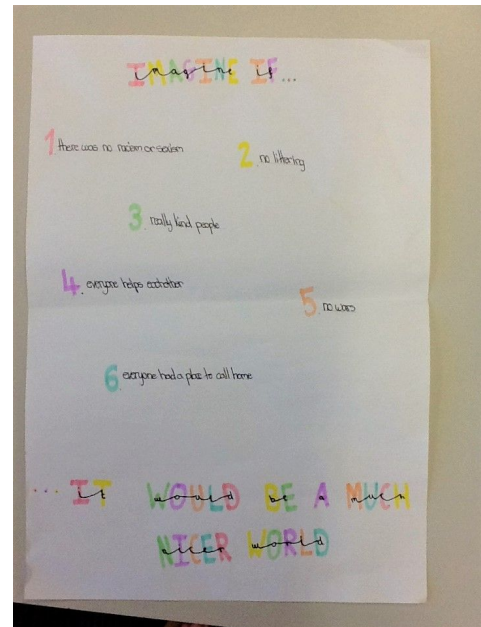 IMAGINE IF...
1. there was no racism or sexism
2. no littering
3. really kind people
4. everyone helps eachother
5. no wars
6. everyone had a place to call home
... IT WOULD BE A MUCH
NICER WORLD